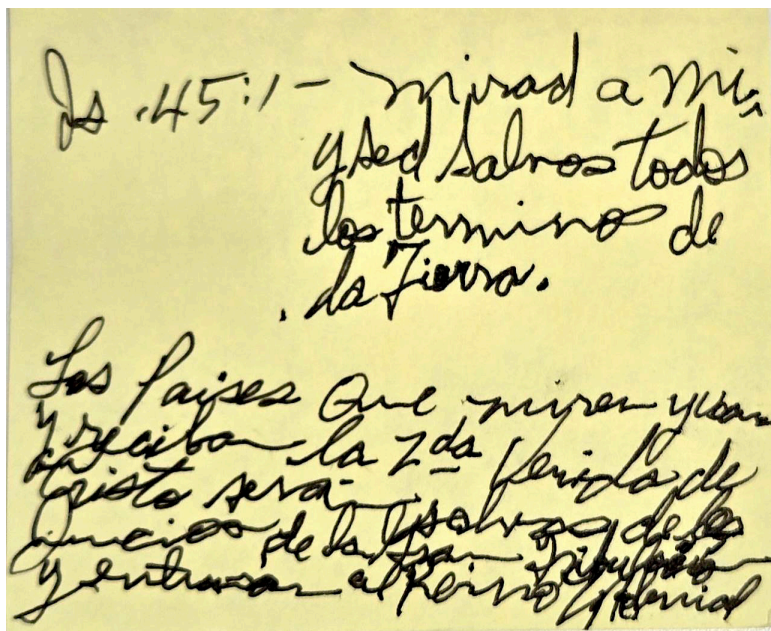 Is. 45:1 - mirad a mi,
y sed salvos todos
los terminos de
la Tierra.
Los Paises Que miren y
y reciban la 2da Venida de
Cristo seran
Juicios de la Gran Tribulación
y entraran al Reino Milenial